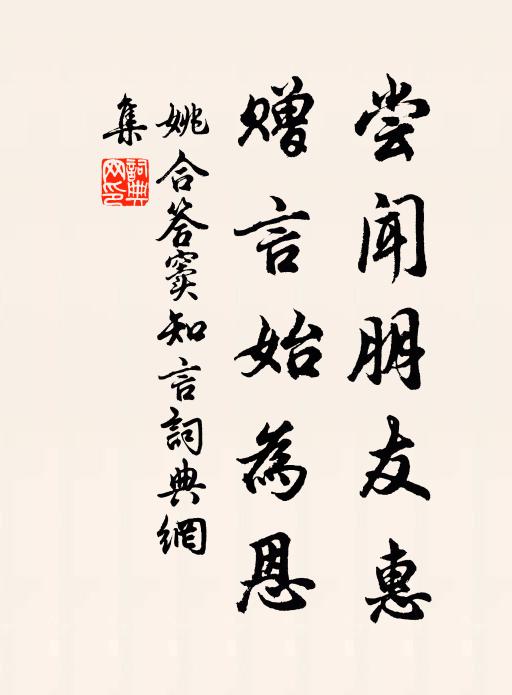 尝闻朋友惠
赠言始為恩
姚合答窦知言詞典網
集
詞典网印